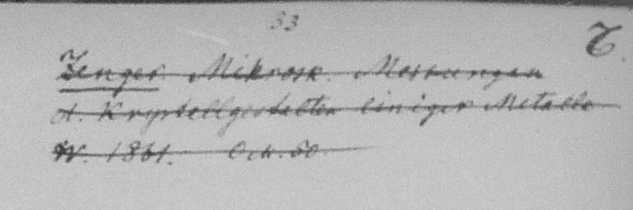 33
Z.
Zenger Mikrosk. Messungen
d. Krystallgestalten einiger Metalle
W. 1861. Oct. 50